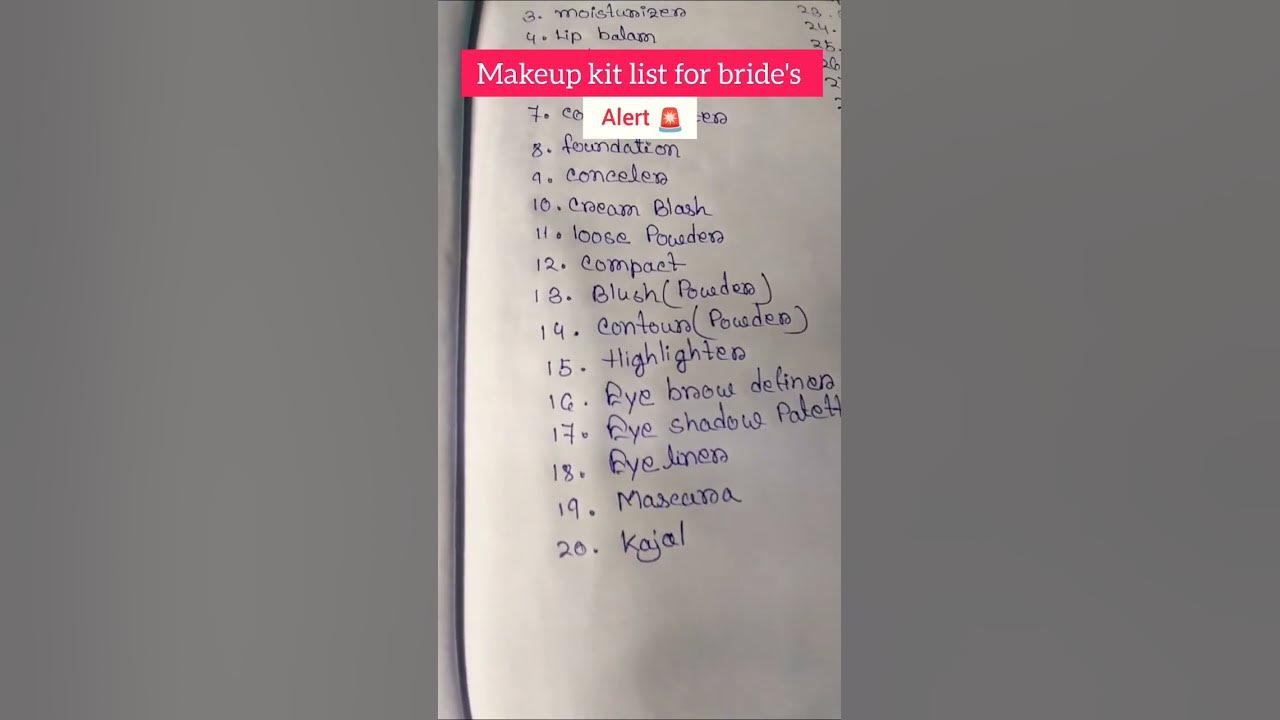 3. moisturizer
4. Lip balam
Makeup kit list for bride's
Alert 🚨
7. co
8. foundation
9. conceler
10. Cream Blash
11. loose Powder
12. Compact
13. Blush (Powder)
14. Contour (Powder)
15. Highlighter
16. Eye brow definer
17. Eye shadow Palett
18. Eye liner
19. Mascara
20. Kajal
23.
24.
25.
26